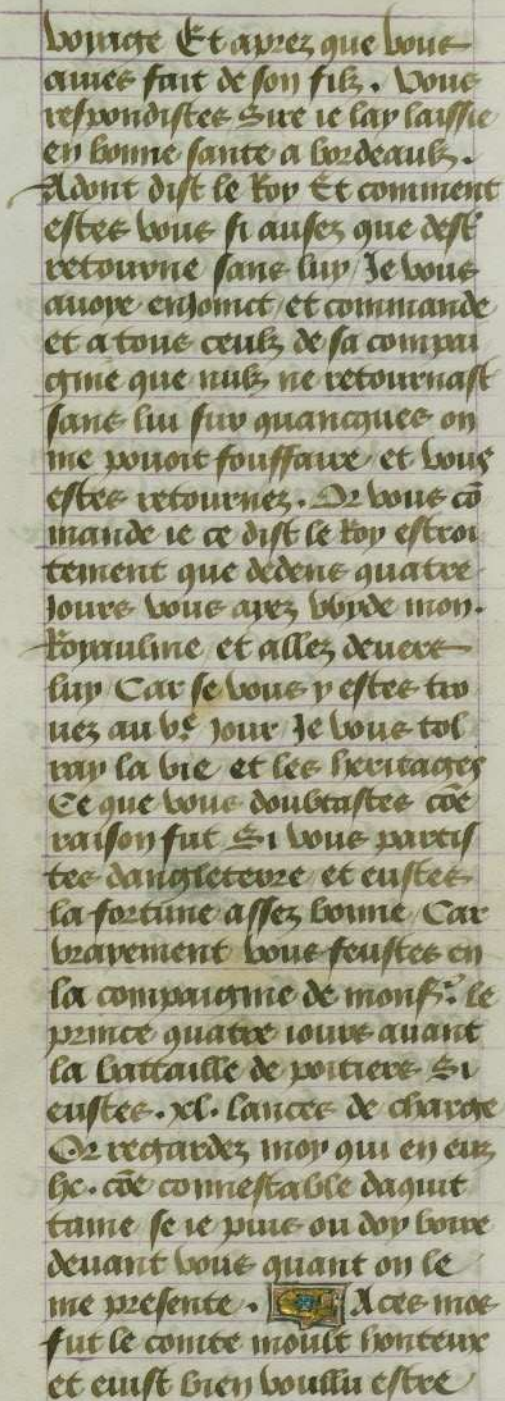 voiaige Et aprez que vous
auies fait de son filz. Vous
respondistes Sire ie lay laissie
en bonne sante a bordeaulz.
Adont dist le Roy Et comment
estes vous si ausez que destre
retourne sans luy Je vous
auoye enjoinct et commande
et a tous ceulz de sa compai
gnie que nulz ne retournast
sans lui sur quancques on
me pouoit fourffaire et vous
estes retournez. Or vous cõ
mande ie ce dist le Roy estroi
tement que dedens quatre
Jours vous ayez vvyde mon
Royaulme et allez deuers
luy Car se vous y estes tro
uez au ve Jour Je vous tol
ray la vie et les heritages
Ce que vous doubtastes cõe
raison fut Si vous partis
tes dangleterre et eustes
la fortune assez bonne Car
vrayement vous feustes en
la compaignie de monsr. le
prince quatre iours auant
la battaille de poitiers Si
eustes .xl. lances de charge
Or regardez moy qui en euz
.iiijc. cõe connestable dacquit
taine se ie puis ou doy boire
deuant vous quant on le
me presente. A ces mos
fut le comte moult honteux
et euist bien voullu estre